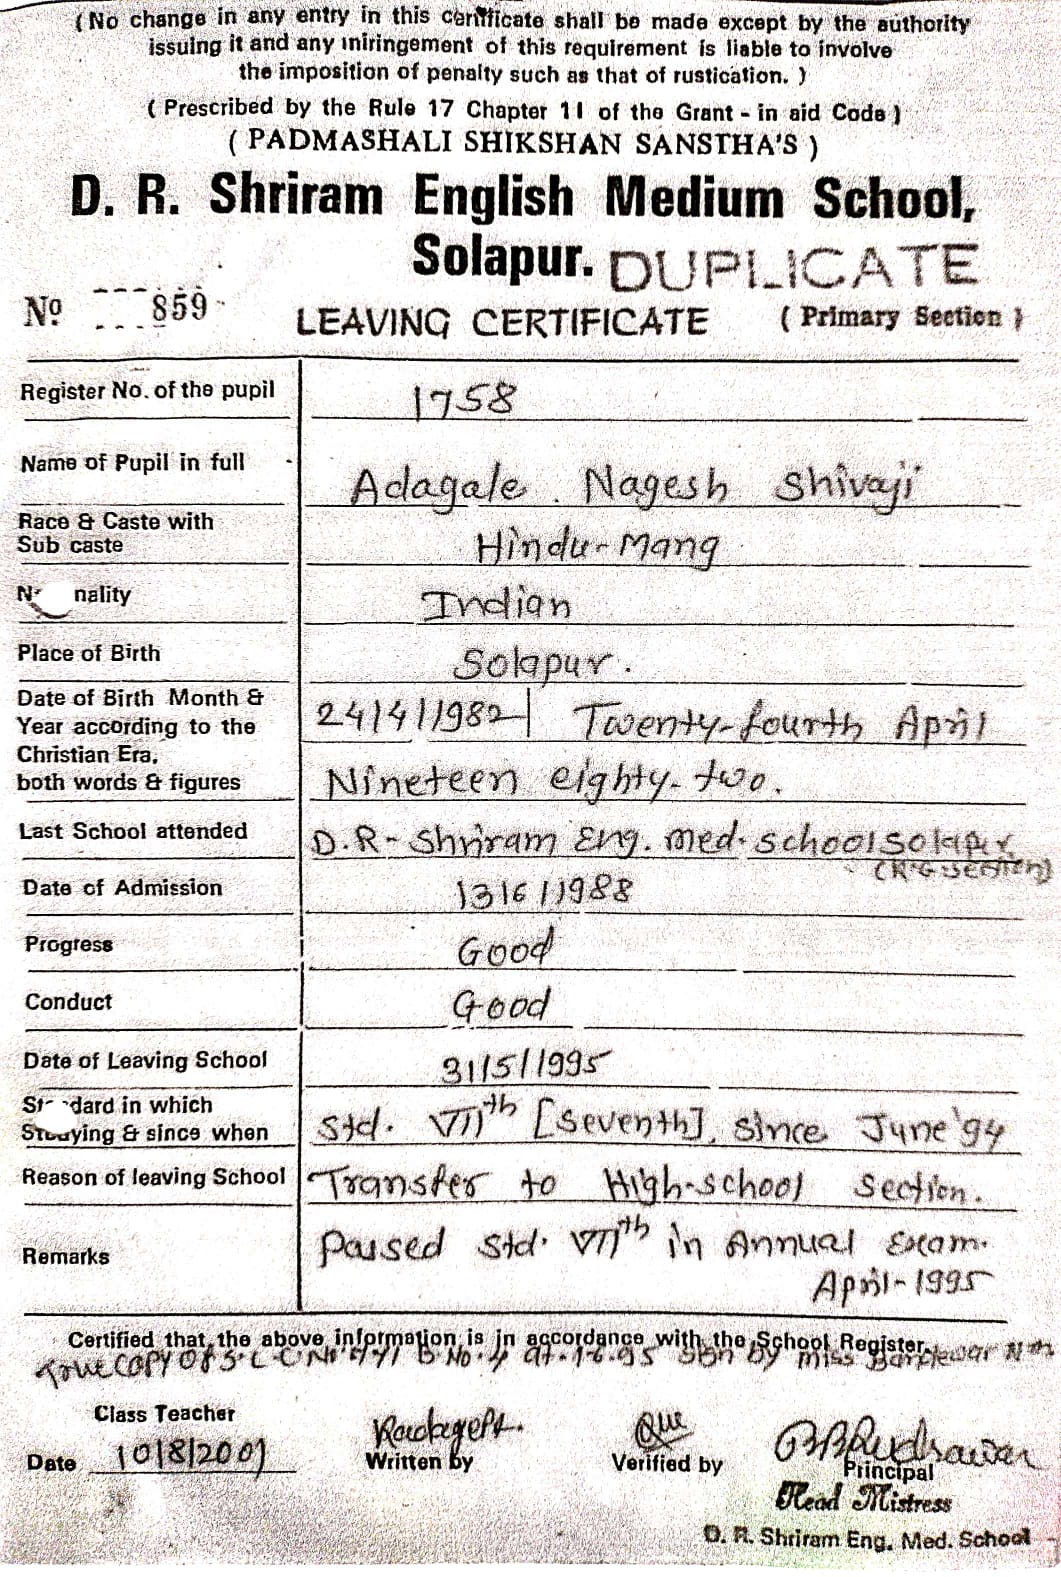 ( No change in any entry in this certificate shall be made except by the authority
issuing it and any iniringement of this requirement is liable to involve
the imposition of penalty such as that of rustication. )
( Prescribed by the Rule 17 Chapter 11 of the Grant - in aid Code )
( PADMASHALI SHIKSHAN SANSTHA'S )
D. R. Shriram English Medium School,
Solapur. DUPLICATE
No 859
LEAVING CERTIFICATE ( Primary Section )
Register No. of the pupil 1758
Name of Pupil in full Adagale. Nagesh Shivaji
Race & Caste with
Sub caste Hindu-Mang
N nality Indian
Place of Birth Solapur.
Date of Birth Month & 24/4/1982 Twenty-fourth April
Year according to the
Christian Era, Nineteen eighty-two.
both words & figures
Last School attended D.R- Shriram Eng. med. school Solapur
(K.G section)
Date of Admission 13/6/1988
Progress Good
Conduct Good
Date of Leaving School 31/5/1995
St dard in which
Studying & since when Std. VIIth [seventh], since June '94
Reason of leaving School Transfer to High-school section.
Remarks Passed Std. VIIth in Annual Exam.
April-1995
Certified that the above information is in accordance with the School Register.
True copy of S.L.C No B No. 4 dt. 1-6-95 sign by miss
Class Teacher
Date 10/8/2001 Written by Verified by Principal
Head Mistress
D. R. Shriram Eng. Med. School